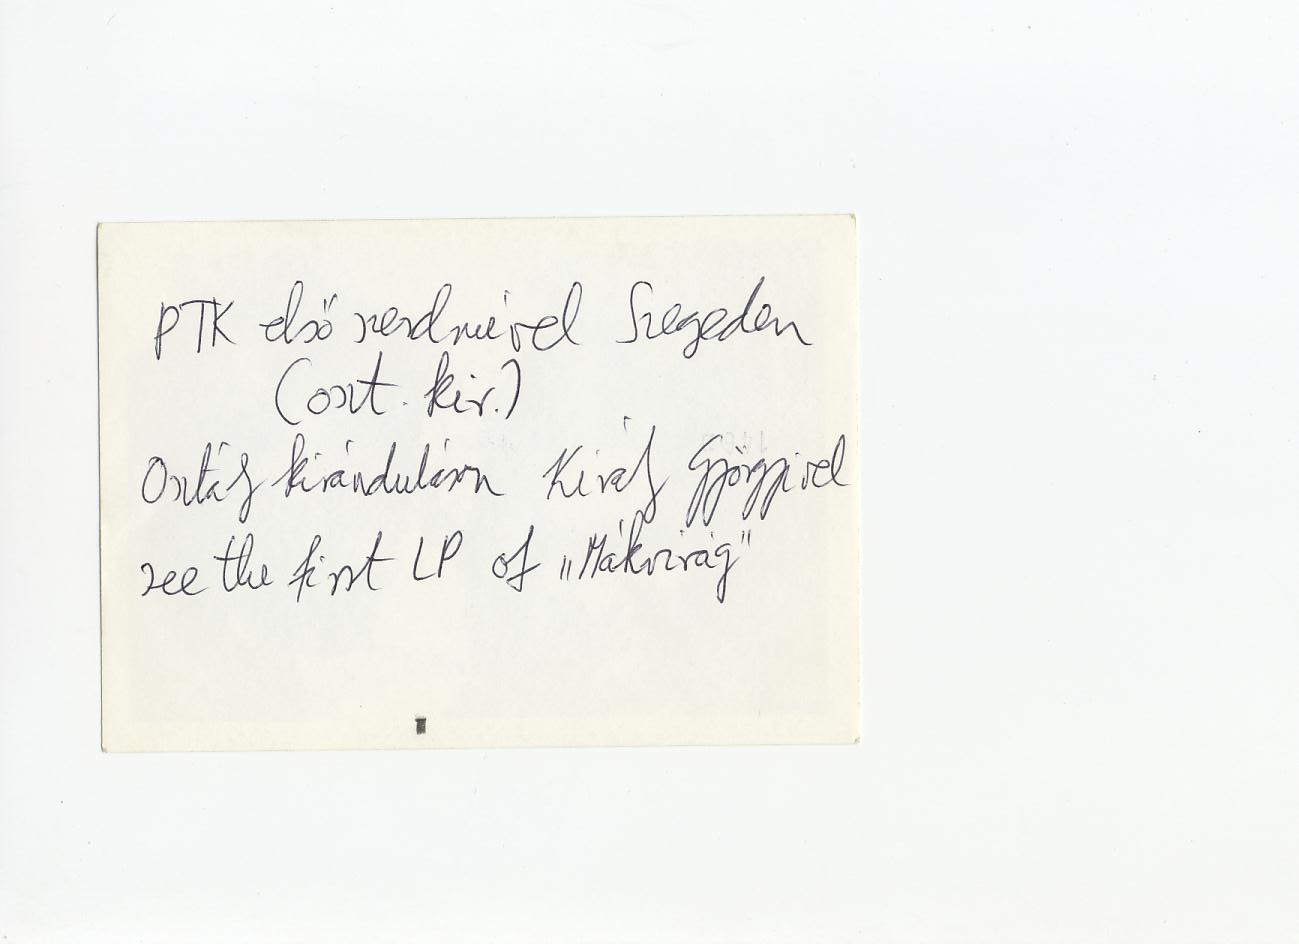 PTK első
Szegeden
(oszt. kir.)
Osztály kiránduláson Király Györgyivel
see the first LP of „Mákvirág"